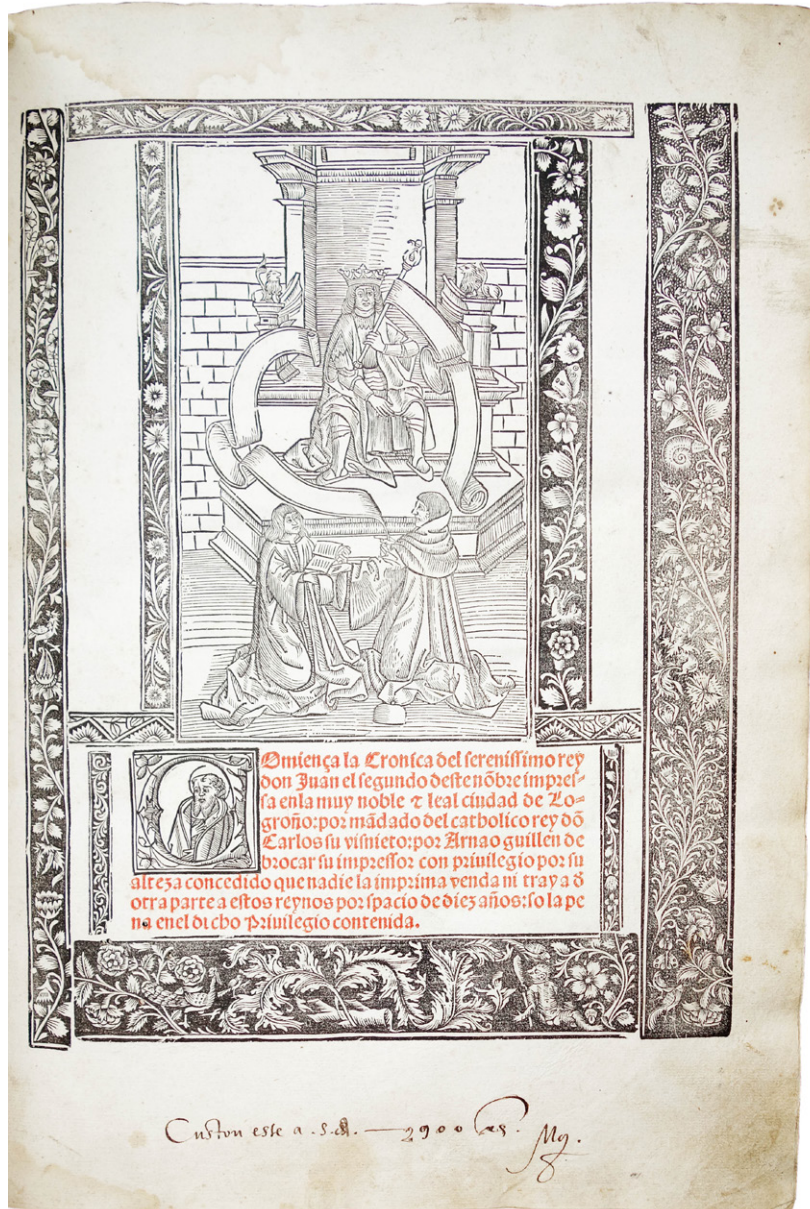 COmiença la Cronica del serenissimo rey
don Juan el segundo deste nõbre impres-
sa enla muy noble ⁊ leal ciudad de Lo=
groño: por mãdado del catholico rey dõ
Carlos su visnieto: por Arnao guillen de
brocar su impressor con priuilegio por su
alteza concedido que nadie la imprima venda ni traya d̃
otra parte a estos reynos por spacio de diez años: so la pe
na enel dicho Priuilegio contenida.
este a 2900